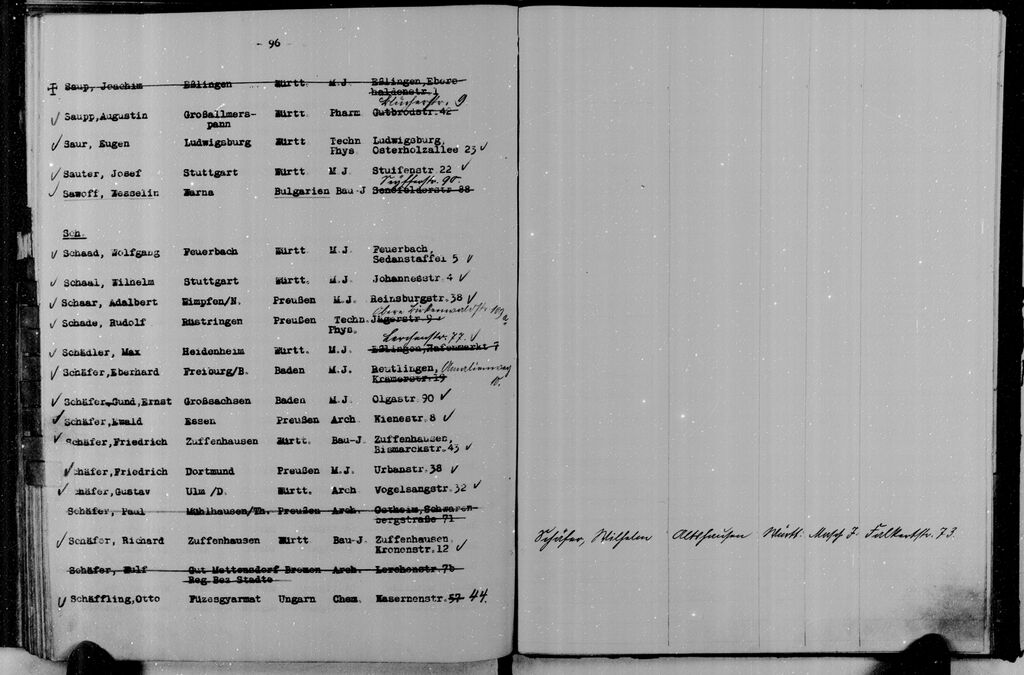 - 96 -
Saup, Joachim Eßlingen Württ. M.J Eßlingen, Ebers-
haldenstr. 1
9
Saupp, Augustin Großallmers- Württ. Pharm Gutbrodstr. 42
pann
Saur, Eugen Ludwigsburg Württ Techn Ludwigsburg,
Phys. Osterholzallee 23
Sauter, Josef Stuttgart Württ M.J. Stuifenstr 22
90.
Sawoff, Wesselin Warna Bulgarien Bau-J Senefelderstr 88
Sch.
Schaad, Wolfgang Feuerbach Württ. M.J. Feuerbach,
Sedanstaffel 5
Schaal, Wilhelm Stuttgart Württ. M.J. Johannesstr. 4
Schaar, Adalbert Wimpfen/N. Preußen M.J. Reinsburgstr. 38
Obere Birkenwaldstr 109a
Schade, Rudolf Rüstringen Preußen Techn. Jägerstr 9
Phys.
Lerchenstr. 77.
Schädler, Max Heidenheim Württ. M.J. Eßlingen, Hafenmarkt 7
Schäfer, Eberhard Freiburg/B. Baden M.J. Reutlingen, Amalienweg
Kramerstr. 19 10.
Schäfer-Gund, Ernst Großsachsen Baden M.J. Olgastr. 90
Schäfer, Ewald Essen Preußen Arch Wienestr. 8
Schäfer, Friedrich Zuffenhausen Württ. Bau-J. Zuffenhausen,
Bismarckstr. 43
Schäfer, Friedrich Dortmund Preußen M.J. Urbanstr. 38
Schäfer, Gustav Ulm /D. Württ. Arch Vogelsangstr. 32
Schäfer, Paul Mühlhausen/Th. Preußen Arch. Ostheim, Schwaren-
bergstraße 71
Schäfer, Richard Zuffenhausen Württ Bau-J. Zuffenhausen,
Kronenstr. 12
Schäfer, Wilhelm Altthausen Württ. Masch J. Falkertstr. 73.
Schäfer, Wulf Gut Mettensdorf Bremen Arch. Lerchenstr. 7b
Reg. Bez Stadte
Schäffling, Otto Füzesgyarmat Ungarn Chem. Kasernenstr. 57 44.